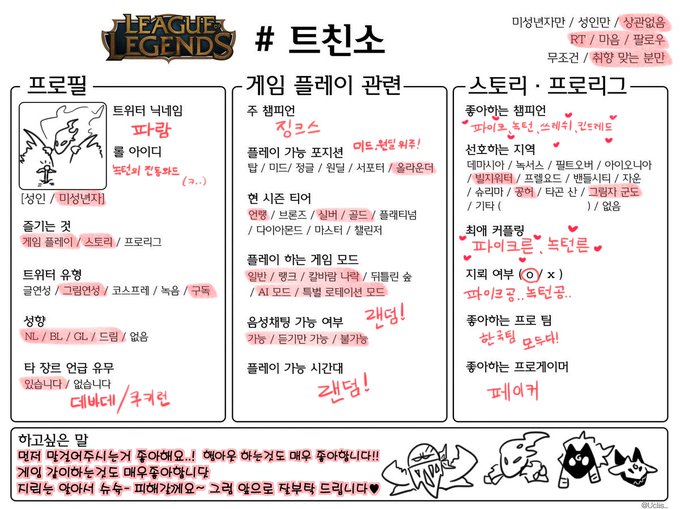 LEAGUE OF LEGENDS
# 트친소
미성년자만 / 성인만 / 상관없음
RT / 마음 / 팔로우
무조건 / 취향 맞는 분만
프로필
트위터 닉네임
파람
롤 아이디
녹턴의 전동와드
(ㅋ..)
[성인 / 미성년자]
즐기는 것
게임 플레이 / 스토리 / 프로리그
트위터 유형
글연성 / 그림연성 / 코스프레 / 녹음 / 구독
성향
NL / BL / GL / 드림 / 없음
타 장르 언급 유무
있습니다 / 없습니다
데바데/쿠키런
게임 플레이 관련
주 챔피언
징크스
플레이 가능 포지션
미드, 원딜 위주!
탑 / 미드/ 정글 / 원딜 / 서포터 / 올라운더
현 시즌 티어
언랭 / 브론즈 / 실버 / 골드 / 플래티넘
/ 다이아몬드 / 마스터 / 챌린저
플레이 하는 게임 모드
일반 / 랭크 / 칼바람 나락 / 뒤틀린 숲
/ AI 모드 / 특별 로테이션 모드
음성채팅 가능 여부
랜덤!
가능 / 듣기만 가능 / 불가능
플레이 가능 시간대
랜덤!
스토리 · 프로리그
좋아하는 챔피언
파이크, 녹턴, 쓰레쉬, 킨드레드
선호하는 지역
데마시아 / 녹서스 / 필트오버 / 아이오니아
/ 빌지워터 / 프렐요드 / 밴들시티 / 자운
/ 슈리마 / 공허 / 타곤 산 / 그림자 군도
/ 기타 ( ) / 없음
최애 커플링
파이크른, 녹턴른
지뢰 여부 ( o / x )
파이크공.. 녹턴공..
좋아하는 프로 팀
한국팀 모두다!
좋아하는 프로게이머
페이커
하고싶은 말
먼저 말걸어주시는거 좋아해요..! 행아웃 하는것도 매우 좋아합니다!!
게임 같이하는것도 매우좋아합니닷
지뢰는 알아서 슈슉- 피해갈게요~ 그럼 앞으로 잘부탁 드립니다♥
@Uclis_